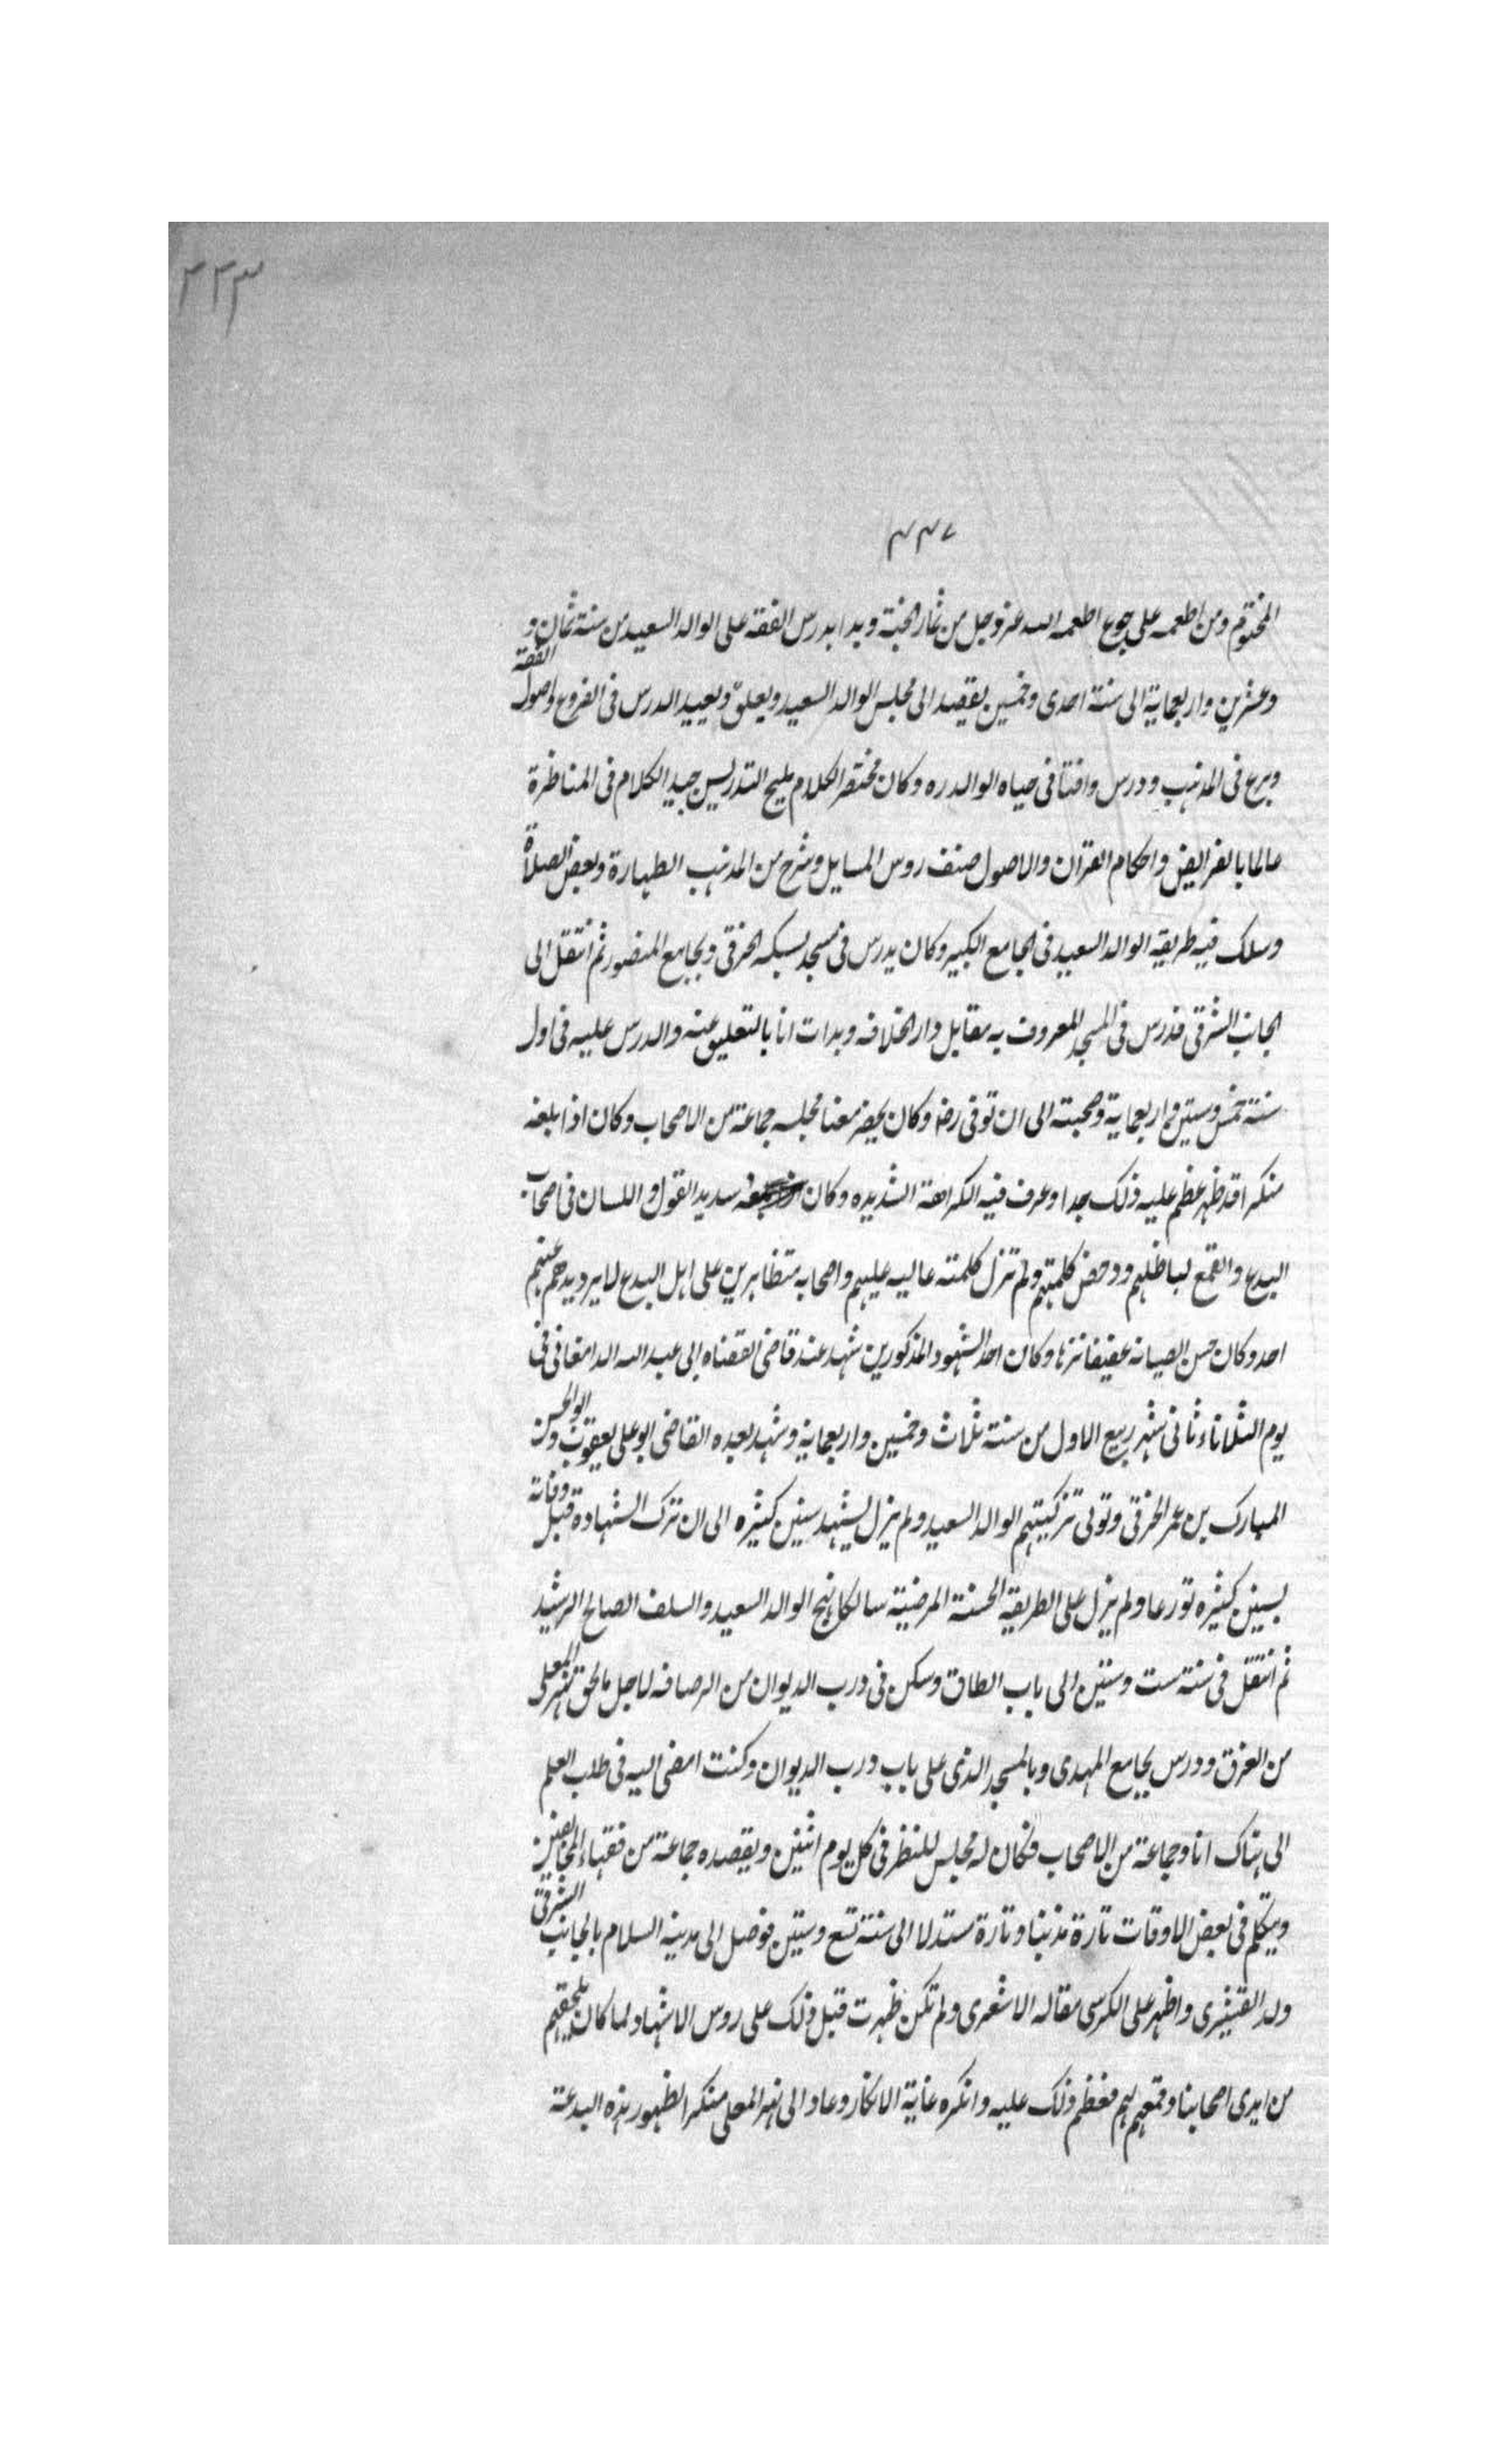 ٢٢٣
٤٤٧
المختوم ومن اطعمه على جوع اطعمه الله عز وجل من ثمار الجنة وبدا بدرس الفقه على الوالد السعيد من سنة ثمان و
وعشرين واربعماية الى سنة احدى وخمسين يقصد الى مجلس الوالد السعيد ويعلق ويعيد الدرس فى الفروع واصول الفقه
وبرع فى المذهب ودرس وافتا فى حياه الوالد ره وكان مختصر الكلام مليح التدريس جيد الكلام فى المناظرة
عالما بالفرايض واحكام القران والاصول صنف روس المسايل وشرح من المذهب الطهارة وبعض الصلاة
وسلك فيه طريقه الوالد السعيد فى الجامع الكبير وكان يدرس فى مسجد بسكه الخرقى وبجامع المنصور ثم انتقل الى
الجانب الشرقى فدرس فى المسجد المعروف به مقابل دار الخلافه وبدات انا بالتعليق عنه والدرس عليه فى اول
سنة خمس وستين واربعماية وصحبته الى ان توفى رضه وكان يحضر معنا مجلسه جماعة من الاصحاب وكان اذا بلغه
منكرا قد ظهر عظم عليه ذلك جدا وعرف فيه الكراهة الشديده وكان سديد القول واللسان فى اصحاب
البدع والقمع لباطلهم ودحض كلمتهم ولم تزل كلمته عاليه عليهم واصحابه متظاهرين على اهل البدع لا يرد يدهم عنهم
احد وكان حسن الصيانه عفيفا نزها وكان احد الشهود المذكورين شهد عند قاضى القضاه ابى عبد الله الدامغانى فى
يوم الثلاثاء ثانى شهر ربيع الاول من سنة ثلاث وخمسين واربعماية وشهد بعده القاضى ابو على يعقوب وابو الحسن
المبارك بن عمر الخرقى وتولى تزكيتهم الوالد السعيد ولم يزل يشهد سنين كثيره الى ان ترك الشهادة قبل وفاته
بسنين كثيره تورعا ولم يزل على الطريقه الحسنة المرضية سالكا نهج الوالد السعيد والسلف الصالح الرشيد
ثم انتقل فى سنة ست وستين الى باب الطاق وسكن فى درب الديوان من الرصافه لاجل ما لحق نهر المعلى
من الغرق ودرس بجامع المهدى وبالمسجد الذى على باب درب الديوان وكنت امضى اليه فى طلب العلم
الى هناك انا وجماعة من الاصحاب فكان له مجلس للنظر فى كل يوم اثنين ويقصده جماعة من فقهاء المخالفين
ويتكلم فى بعض الاوقات تارة مذنبا وتارة مستدلا الى سنة تسع وستين فوصل الى مدينه السلام بالجانب الشرقى
ولد القشيرى واظهر على الكرسى مقاله الاشعرى ولم تكن ظهرت قبل ذلك على روس الاشهاد لما كان يلحقهم
من ايدى اصحابنا وقمعهم لهم فعظم ذلك عليه وانكره غاية الانكار وعاد الى نهر المعلى منكرا لظهور هذه البدعة